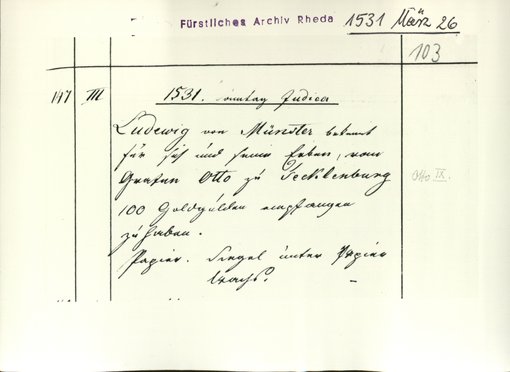 Fürstliches Archiv Rheda 1531 März 26
103
147 III 1531. sonntag Judica
Ludewig von Münster bekennt
für sich und seine Erben, vom
Grafen Otto zu Tecklenburg Otto IX.
100 Goldgulden empfangen
zu haben.
Papier. Siegel unter Papier
Wachs.